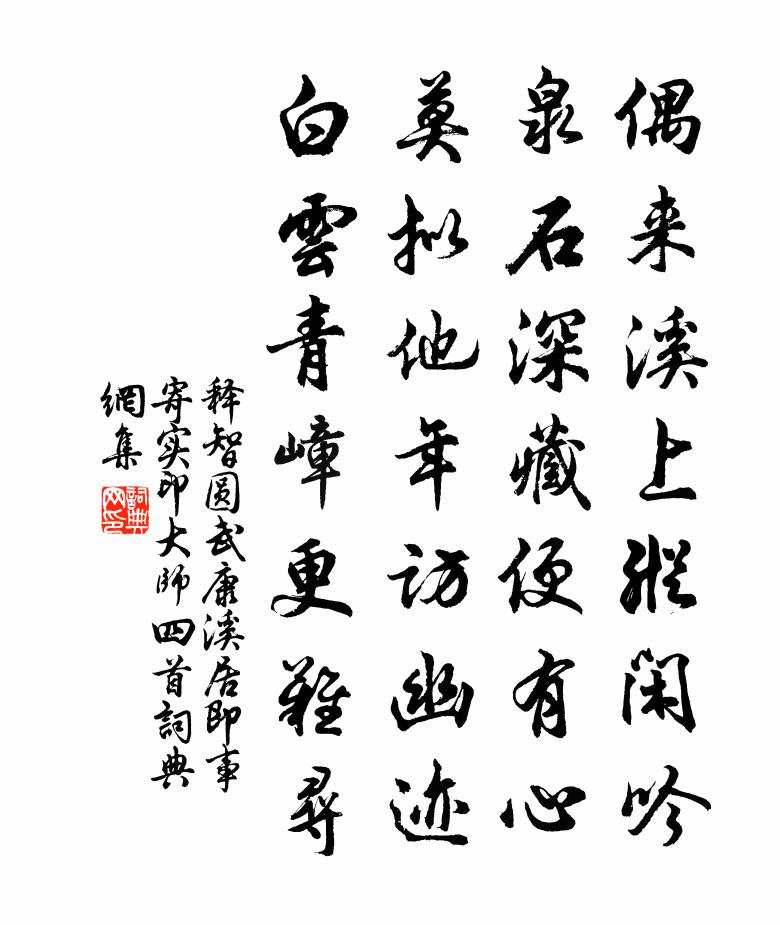 偶来溪上纵闲吟
泉石深藏便有心
莫拟他年访幽迹
白雲青嶂更難尋
释智圆武康溪居即事
寄实印大师四首詞典
網集
詞典
网印